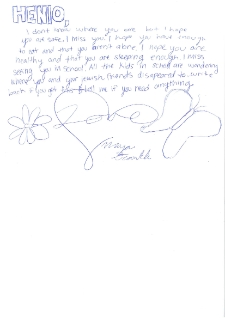 HENIO,
I don't know where you are but I hope
you are safe. I miss you. I hope you have enough
to eat and that you aren't alone. I hope you are
healthy and that you are sleeping enough. I miss
seeing you in school. All the kids in school are wondering
where you and your cousin disappeared to. write
back if you get this and tell me if you need anything.
Love
Maya